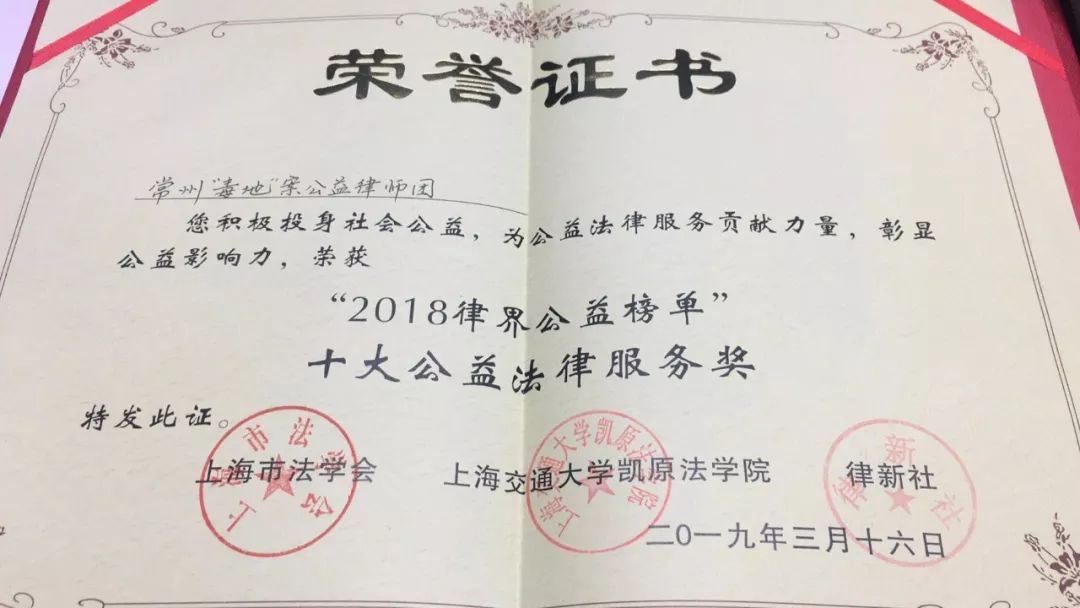 荣誉证书
常州“毒地”案公益律师团
您积极投身社会公益，为公益法律服务贡献力量，彰显
公益影响力，荣获
“2018律界公益榜单”
十大公益法律服务奖
特发此证。
上海市法学会 上海交通大学凯原法学院 律新社
二〇一九年三月十六日
上海市法学会
上海交通大学凯原法学院
律新社